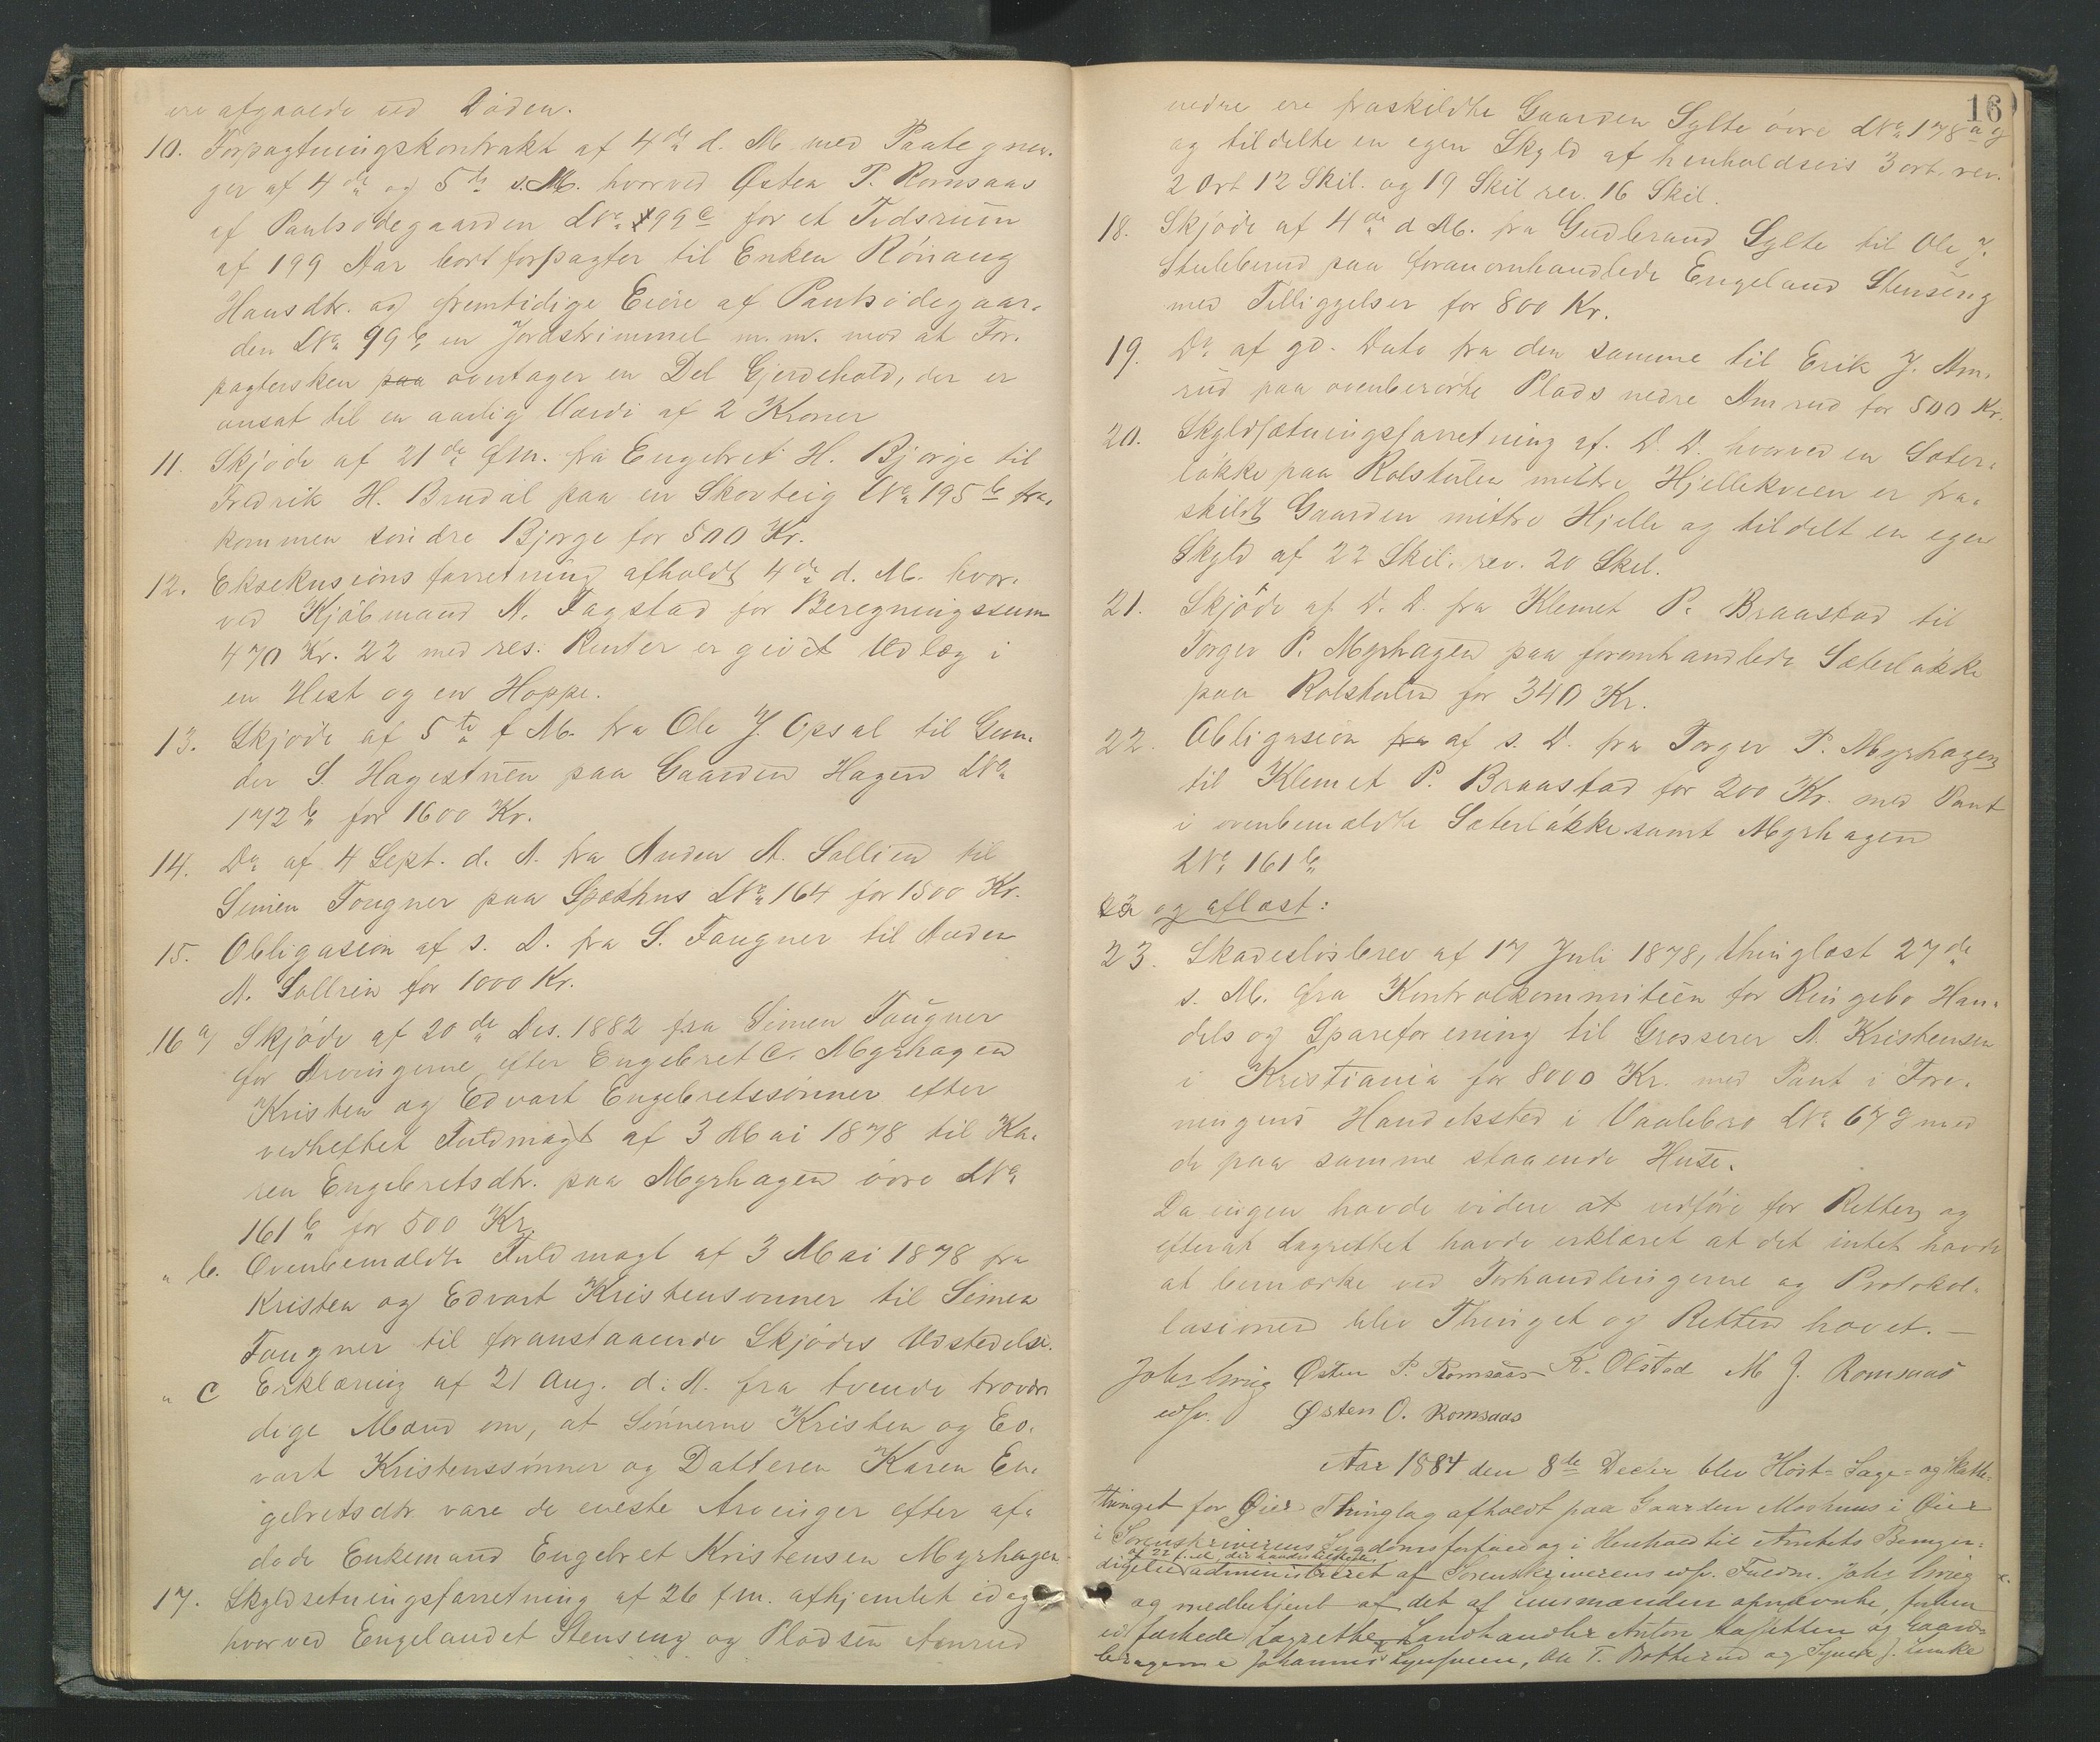 ere afgaaede ved Döden.
10. Forpagtningskontrakt af 4de d. M. med Paategnin-
ger af 4de og 5te s. M. hvorved Østen P. Romsaas
af Paulsödegaarden LNo 99c for et Tidsrum
af 199 Aar bortforpagter til Enken Rönnaug
Hansdtr. og fremtidige Eiere af Paulsödegaar-
den LNo 99b en Jordstrimmel m. m. mod at For-
pagtersken paa overtager en Del Gjerdehold, der er
ansat til en aarlig Værdi af 2 Kroner
11. Skjöde af 21de f. M. fra Engebret H. Bjørge til
Fredrik H. Brudal paa en Skovteig LNo 195b fra-
kommen söndre Bjørge for 500 Kr.
12. Eksekusionsforretning afholdt 4de d. M. hvor-
ved Kjöbmand N. Fagstad for Beregningssum
470 Kr. 22 med res. Renter er givet Udlæg i
en Hest og en Hoppe.
13. Skjöde af 5te f. M. fra Ole J. Opsal til Gun-
der S. Hagestuen paa Gaarden Hagen LNo
172b for 1600 Kr.
14. Do af 4 Sept. d. A. fra Anden A. Sollien til
Simen Tougner paa Spækhus LNo 164 for 1500 Kr.
15. Obligasion af s. D. fra S. Tougner til Anden
A. Sollien for 1000 Kr.
16 a) Skjöde af 20de Des. 1882 fra Simen Tougner
for Arvingerne efter Engebret C. Myrhagen
Kristen og Edvart Engebretssönner efter
vedheftet Fuldmagt af 3 Mai 1878 til Ka-
ren Engebretsdtr. paa Myrhagen övre LNo
161b for 500 Kr.
" b. Ovenbemældte Fuldmagt af 3 Mai 1878 fra
Kristen og Edvart Kristensønner til Simen
Tougner til foranstaaende Skjödes Udstedelse.
" c Erklæring af 21 Aug. d. A. fra tvende trovær-
dige Mænd om, at Sönnerne Kristen og Ed-
vart Kristenssönner og Datteren Karen En-
gebretsdtr vare de eneste Arvinger efter af-
døde Enkemand Engebret Kristensen Myrhagen
17. Skyldsetningsforretning af 26 f. m. afhjemlet idag
hvorved Engelandet Stenseng og Pladsen Amrud
16
nedre ere fraskildte Gaarden Sylte övre LNo 178a
og tildelte en egen Skyld af henholdsvis 3 ort. rev.
2 Ort 12 Skil. og 19 Skil rev. 16 Skil.
18. Skjöde af 4de d M. fra Gudbrand Sylte til Ole J.
Stubberud paa foranomhandlede Engeland Stenseng
med Tilliggelser for 800 Kr.
19. Do af gd. Dato fra den samme til Erik J. Am-
rud paa ovenberörte Plads nedre Amrud for 500 Kr.
20. Skyldsætningsforretning af. D. D. hvorved en Sæter-
løkke paa Rolstulen mittre Hjellekveen er fra-
skildt Gaarden mittre Hjelle og tildelt en egen
Skyld af 22 Skil. rev. 20 Skil.
21. Skjøde af D. D. fra Klemet P. Braastad til
Torger P. Myrhagen paa foromhandlede Sæterløkke
paa Rolstulen for 340 Kr.
22. Obligasion fra af s. D. fra Torger P. Myrhagen
til Klemet P. Braastad for 200 Kr. med Pant
i ovenbemældte Sæterløkke samt Myrhagen
LNo 161b
og aflæst:
23. Skadeslösbrev af 17 Juli 1878, thinglæst 27de
s. M. fra Kontrolkommiteen for Ringebo Han-
dels og Spareforening til Grosserer N. Kristensen
i Kristiania for 8000 Kr. med Pant i Fore-
ningens Handelssted i Vaalebro LNo 67g med
de paa samme staaende Huse.
Da ingen havde videre at vedföre for Retten og
efterat Lagrettet havde erklæret at det intet havde
at bemærke ved Forhandlingerne og Protokol-
lasionen blev Thinget og Retten hævet. —
Johs Grieg Østen P. Romsaas K. Olstad M J. Romsaas
edsv. Østen O. Romsaas
Aar 1884 den 8de Decbr blev Höst- Sage- og Skatte-
thinget for Öier Thinglag afholdt paa Gaarden Moshuus i Öier
i Sorenskriverens Sygdomsforfald og i Henhold til Amtets Bemyn-
digelse administreret af Sorenskriverens edsv. Fuldm. Johs Grieg
og medbetjent af det af Lensmanden opnævnte, forhen
edfæstede Lagrette Landhandler Anton Lasetten og Gaard-
brugerne Johannes Lynsveen, Ole T. Botterud og Simen J. Linke